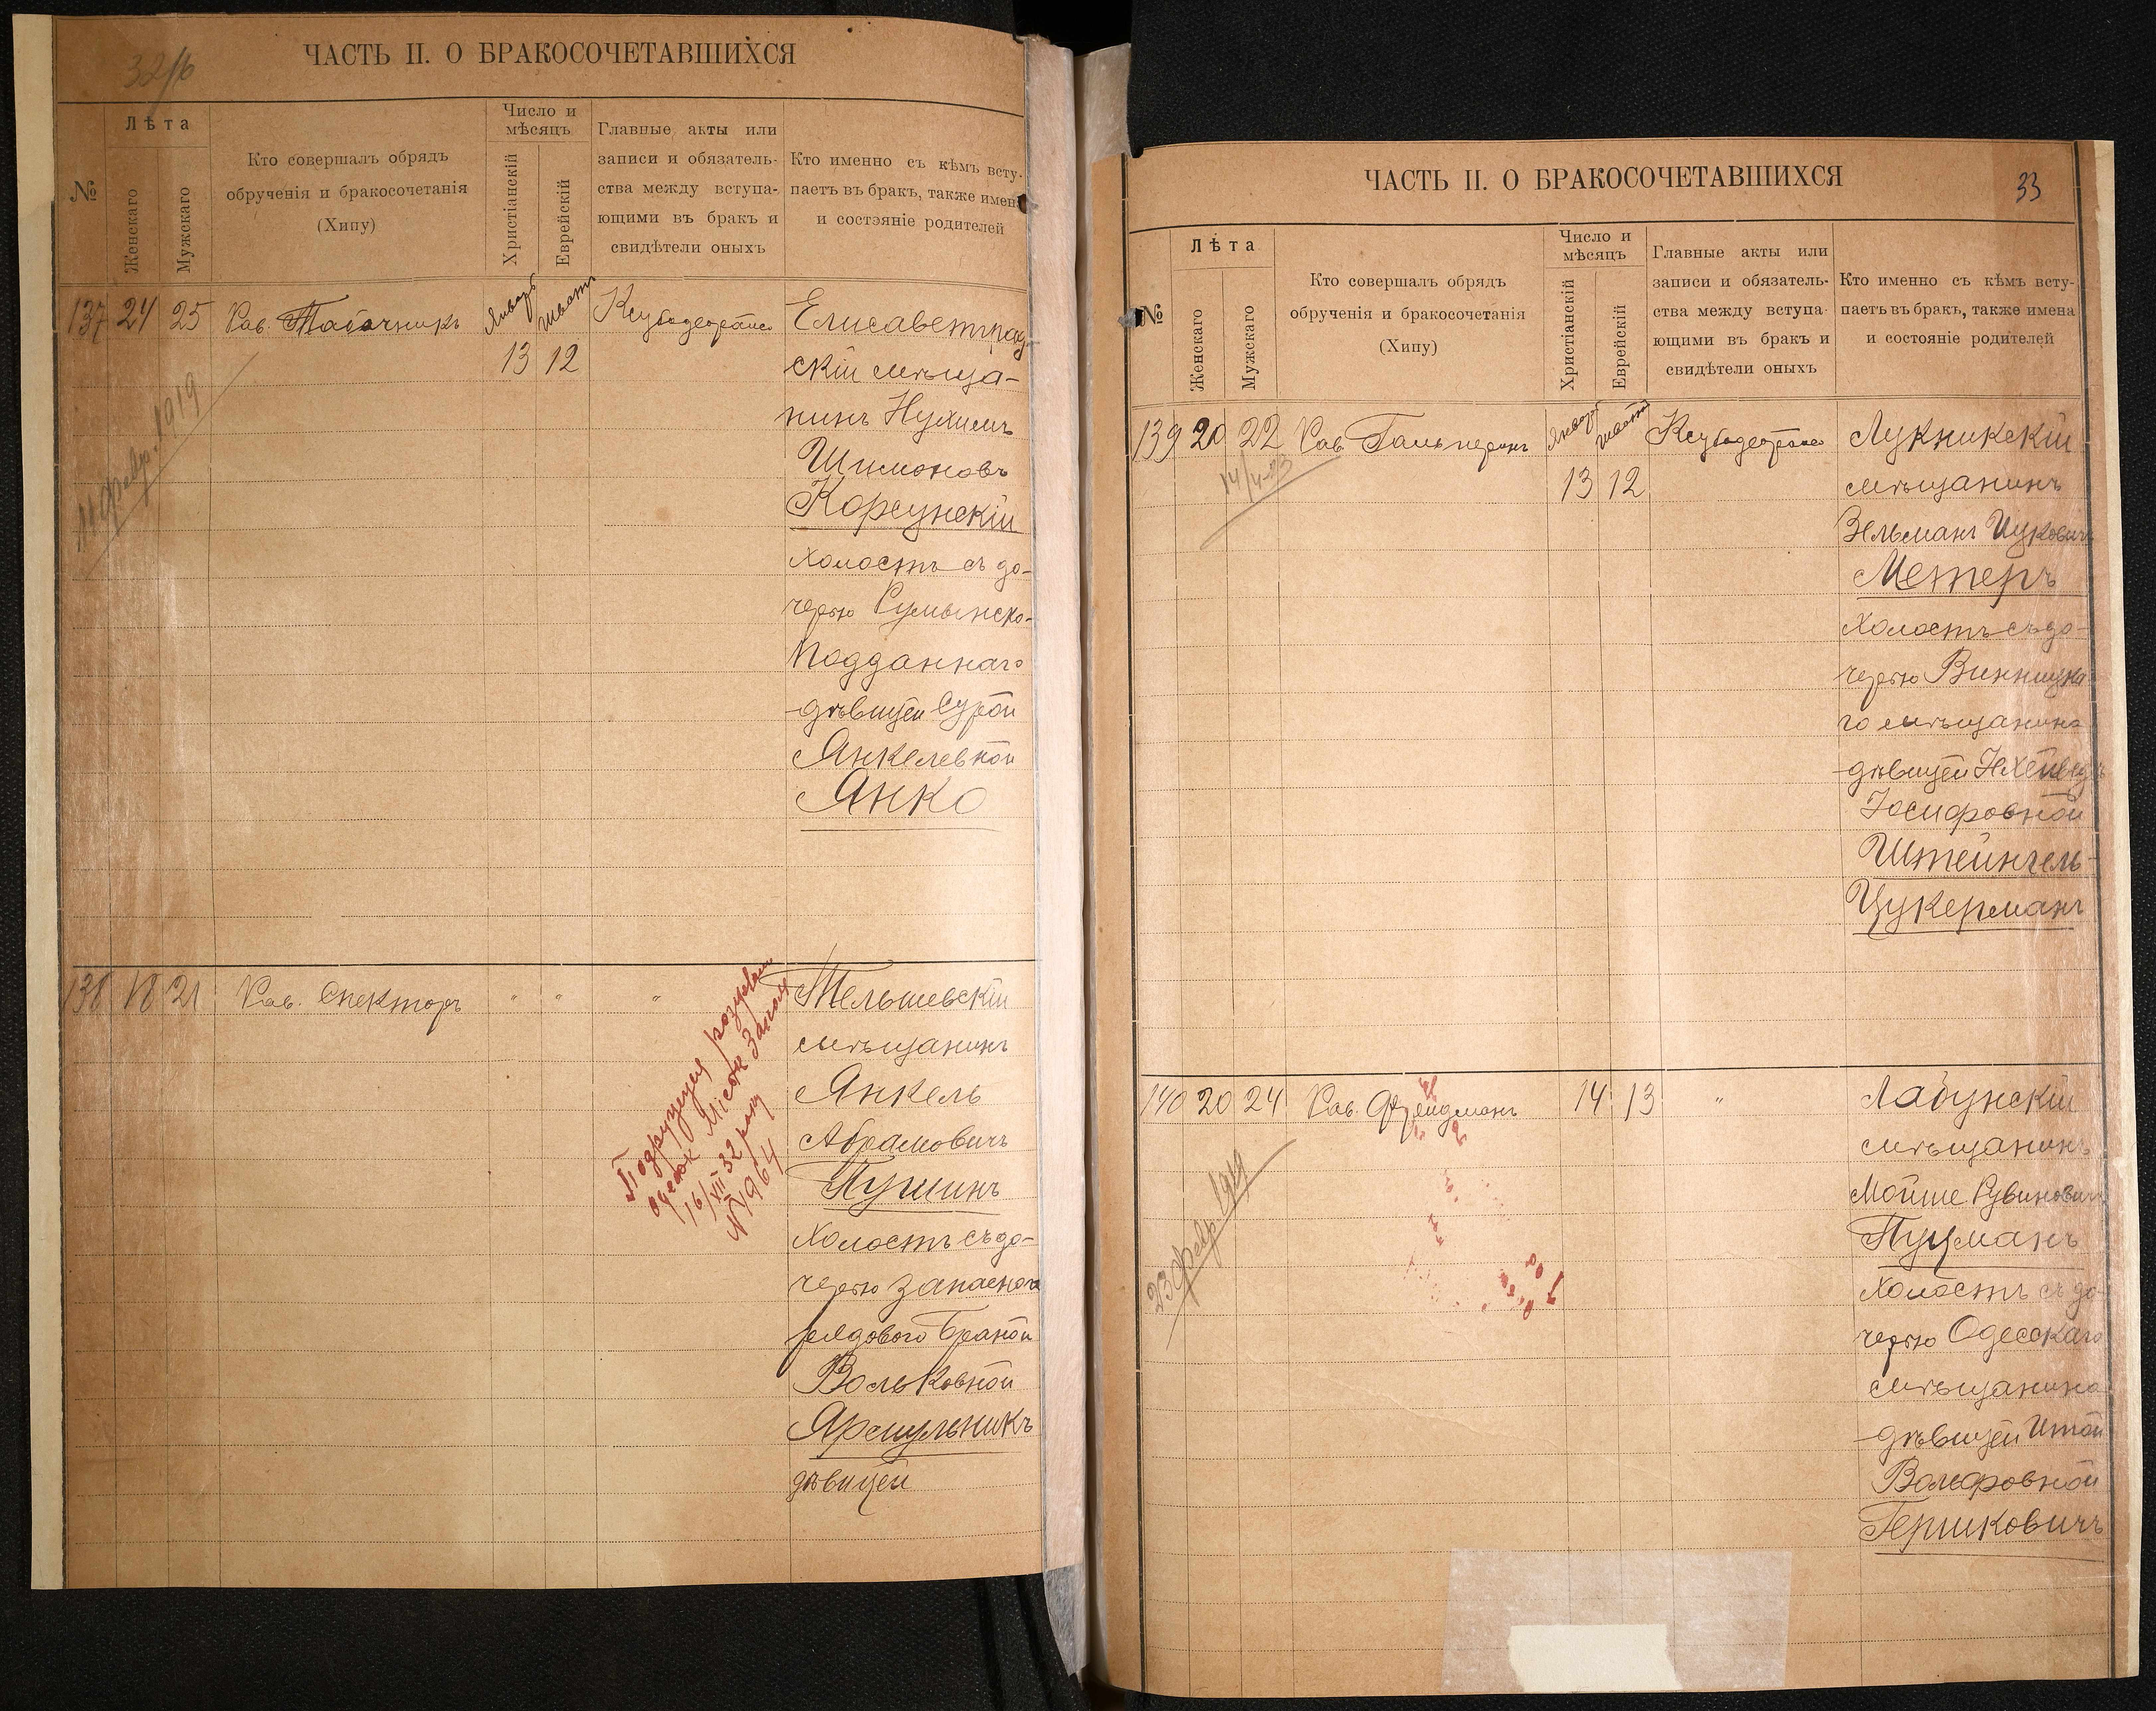 32 об
ЧАСТЬ II. О БРАКОСОЧЕТАВШИХСЯ
№
Лѣта
Женскаго
Мужскаго
Кто совершалъ обрядъ
обрученія и бракосочетанія
(Хипу)
Число и
мѣсяцъ
Христіанскій
Еврейскій
Главные акты или
записи и обязатель-
ства между вступа-
ющими въ бракъ и
свидѣтели оныхъ
Кто именно съ кѣмъ всту-
паетъ въ бракъ, также имена
и состояніе родителей
137 24 25 Рав. Табачникъ Январь Шватъ
13 12
Елисаветград-
скій мѣща-
нинъ Нухимъ
Шимоновъ
Корсунскій
холостъ съ до-
черью Румынско-
Подданнаго
дѣвицей Сурой
Янкелевной
Янко
11 февр. 1919
138 18 21 Рав. Спекторъ " " "
Тельшевскій
мѣщанинъ
Янкель
Абрамовичъ
Пушинъ
холостъ съ до-
черью запаснаго
рядового Браной
Вольковной
Ярмульникъ
дѣвицей
16/VII 32 року
№ 1964
ЧАСТЬ II. О БРАКОСОЧЕТАВШИХСЯ
33
№
Лѣта
Женскаго
Мужскаго
Кто совершалъ обрядъ
обрученія и бракосочетанія
(Хипу)
Число и
мѣсяцъ
Христіанскій
Еврейскій
Главные акты или
записи и обязатель-
ства между вступа-
ющими въ бракъ и
свидѣтели оныхъ
Кто именно съ кѣмъ всту-
паетъ въ бракъ, также имена
и состояніе родителей
139 20 22 Рав. Гальперинъ Январь Шватъ
13 12
Лукникскій
мѣщанинъ
Зельманъ Ицковичъ
Метеръ
холостъ съ до-
черью Винницка-
го мѣщанина
дѣвицей
Іосифовной
Штейнгель-
Цукерманъ
140 20 24 Рав. Фрейдманъ 14 13 "
Лабунскій
мѣщанинъ
Мойше Рувиновичъ
Пуцманъ
холостъ съ до-
черью Одесскаго
мѣщанина
дѣвицей Итой
Волфовной
Гершковичъ
23 февр. 1919